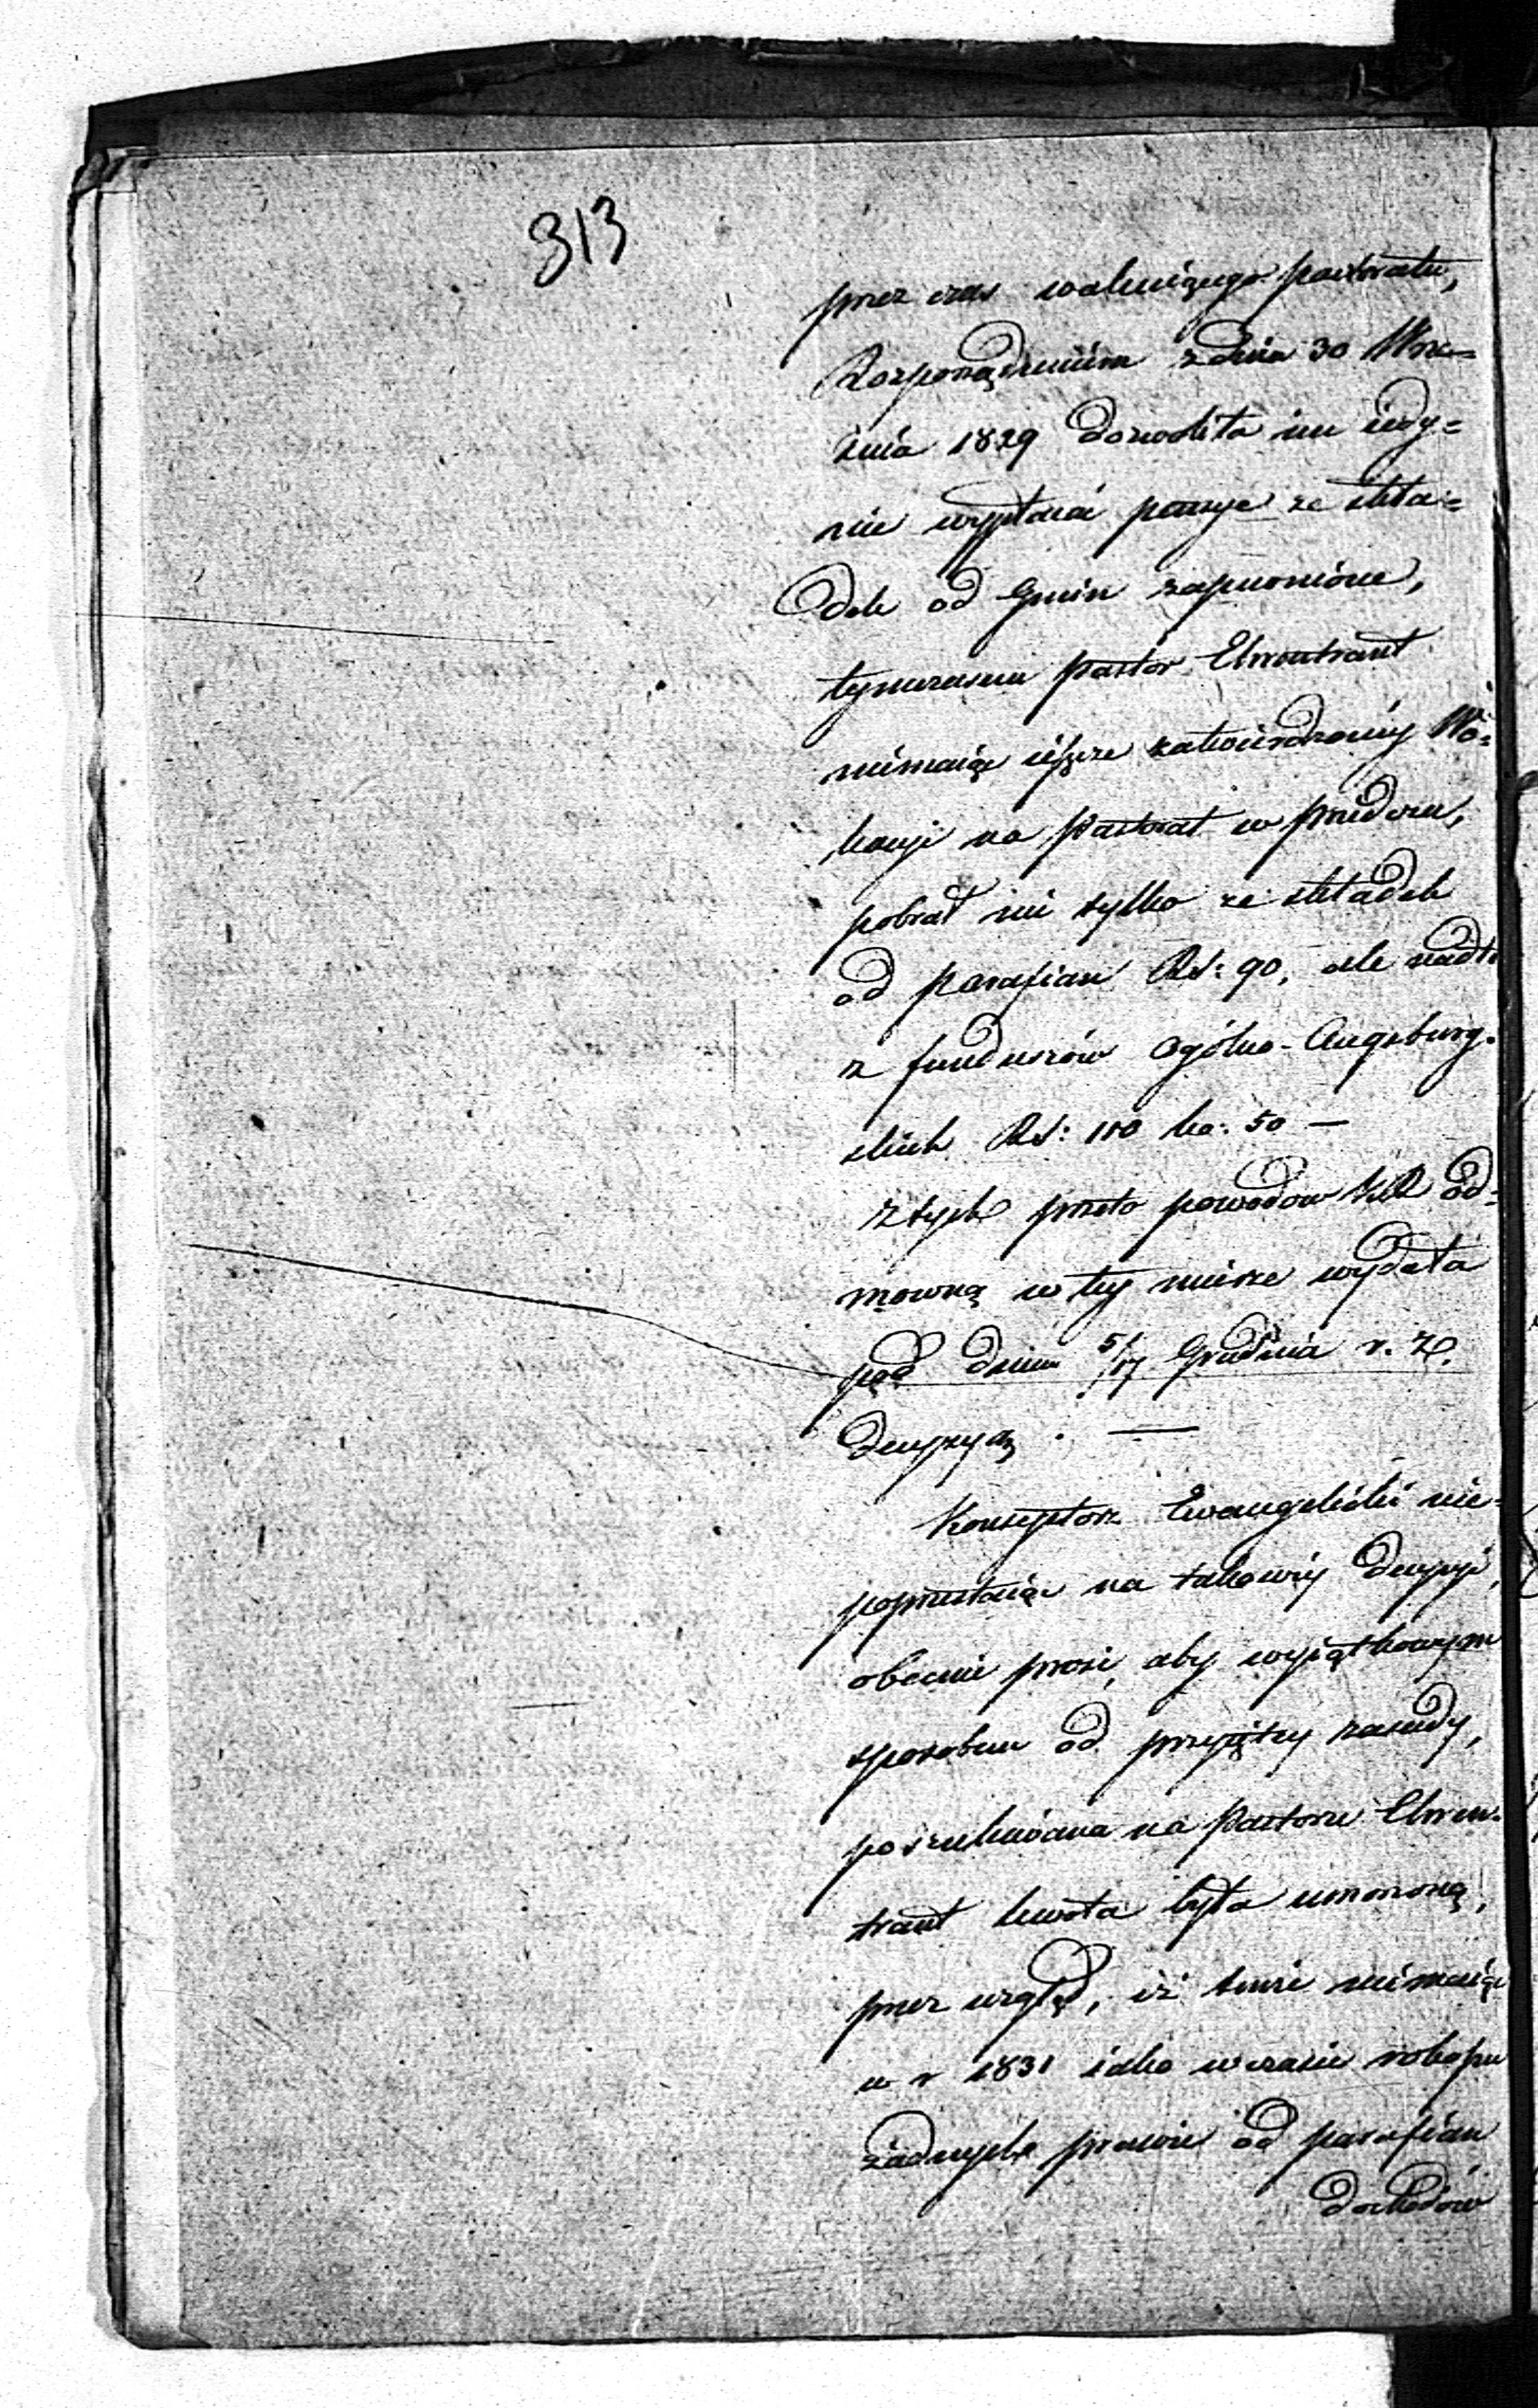 313
przez czas wakuiącego pastoratu,
Rozporządzeniem z dnia 30 Wrze=
śnia 1829 dozwoliła im iedy=
nie wypłacać pensye ze skła=
dek od Gmin zapewnione,
tymczasem pastor Ehrentraut
niemaiąc ieszcze zatwierdzoney Wo=
kacyi na Pastorat w
pobrał nie tylko ze składek
od parafian RS: 90, ale nadto
z funduszów Ogólno-Augsburg.
skich RS: 110 ko: 50 —
z tych przeto powodów KR od=
mowną w tey mierze wydała
pod dniem 5/17 Grudnia r. z.
decyzyą. —
Konsystorz Ewangelicki nie=
poprzestaiąc na takowey decyzyi,
obecnie prosi, aby wyiątkowym
sposobem od przyiętey zasady,
poszukiwana na Pastorze Ehren=
traut kwota była umorzoną,
przez wzgląd, iż tenże niemaiąc
w r 1831 iako w czasie rokoszu
żadnych prawie od parafian
dochodów